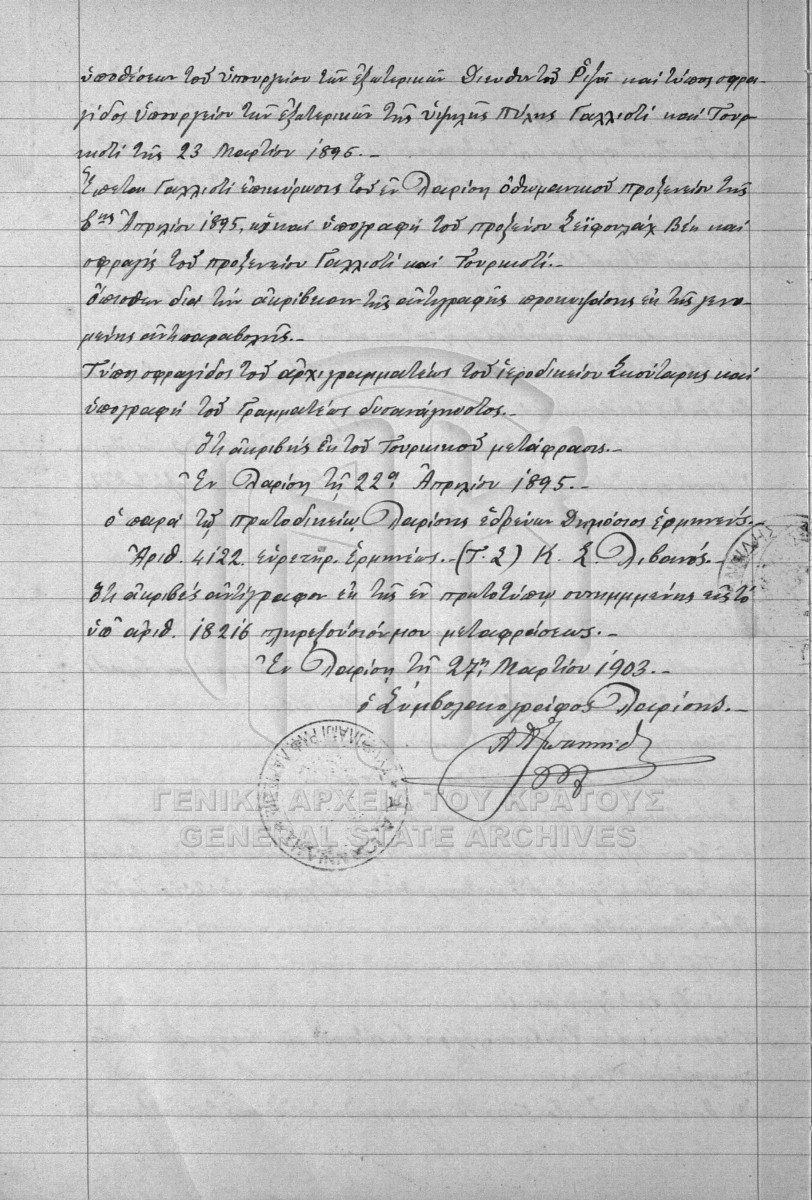 ὑποθέσεων τοῦ ὑπουργείου τῶν ἐξωτερικῶν Διευθυντοῦ Ριζᾶ καὶ τύπος σφρα-
γῖδος ὑπουργείου τῶν ἐξωτερικῶν τῆς ὑψηλῆς Πύλης Γαλλιστὶ καὶ Τουρ-
κιστὶ τῆς 23 Μαρτίου 1895.-
Ἕπεται Γαλλιστὶ ἐπικύρωσις τοῦ ἐν Λαρίση ὀθωμανικοῦ προξενείου τῆς
6ης Ἀπριλίου 1895, καὶ ὑπογραφὴ τοῦ προξένου Σεϊφουλὰχ Βέη καὶ
σφραγὶς τοῦ προξενείου Γαλλιστὶ καὶ Τουρκιστί.-
ὄπισθεν διὰ τὴν ἀκρίβειαν τῆς ἀντιγραφῆς προκυψάσης ἐκ τῆς γενο-
μένης ἀντιπαραβολῆς.-
Τύπος σφραγῖδος τοῦ ἀρχιγραμματέως τοῦ ἱεροδικείου Σκούταρης καὶ
ὑπογραφὴ τοῦ Γραμματέως δυσανάγνωστος.-
Ὅτι ἀκριβὴς ἐκ τοῦ Τουρκικοῦ μετάφρασις.-
Ἐν Λαρίση τῇ 22α Ἀπριλίου 1895.-
ὁ παρὰ τῷ πρωτοδικείῳ Λαρίσης ἑδρεύων Δημόσιος ἑρμηνεύς.
Ἀριθ. 4122 εὑρετηρ. Ἑρμηνέως.- (Τ.Σ) Κ. Σ. Λιβανός.-
Ὅτι ἀκριβὲς ἀντίγραφον ἐκ τῆς ἐν πρωτοτύπῳ συνημμένης εἰς τὸ
ὑπ' ἀριθ. 18216 πληρεξούσιόν μου μεταφράσεως.-
Ἐν Λαρίση τῇ 27η Μαρτίου 1903.-
ὁ Συμβολαιογράφος Λαρίσης.-
ΓΕΝΙΚΑ ΑΡΧΕΙΑ ΤΟΥ ΚΡΑΤΟΥΣ
GENERAL STATE ARCHIVES